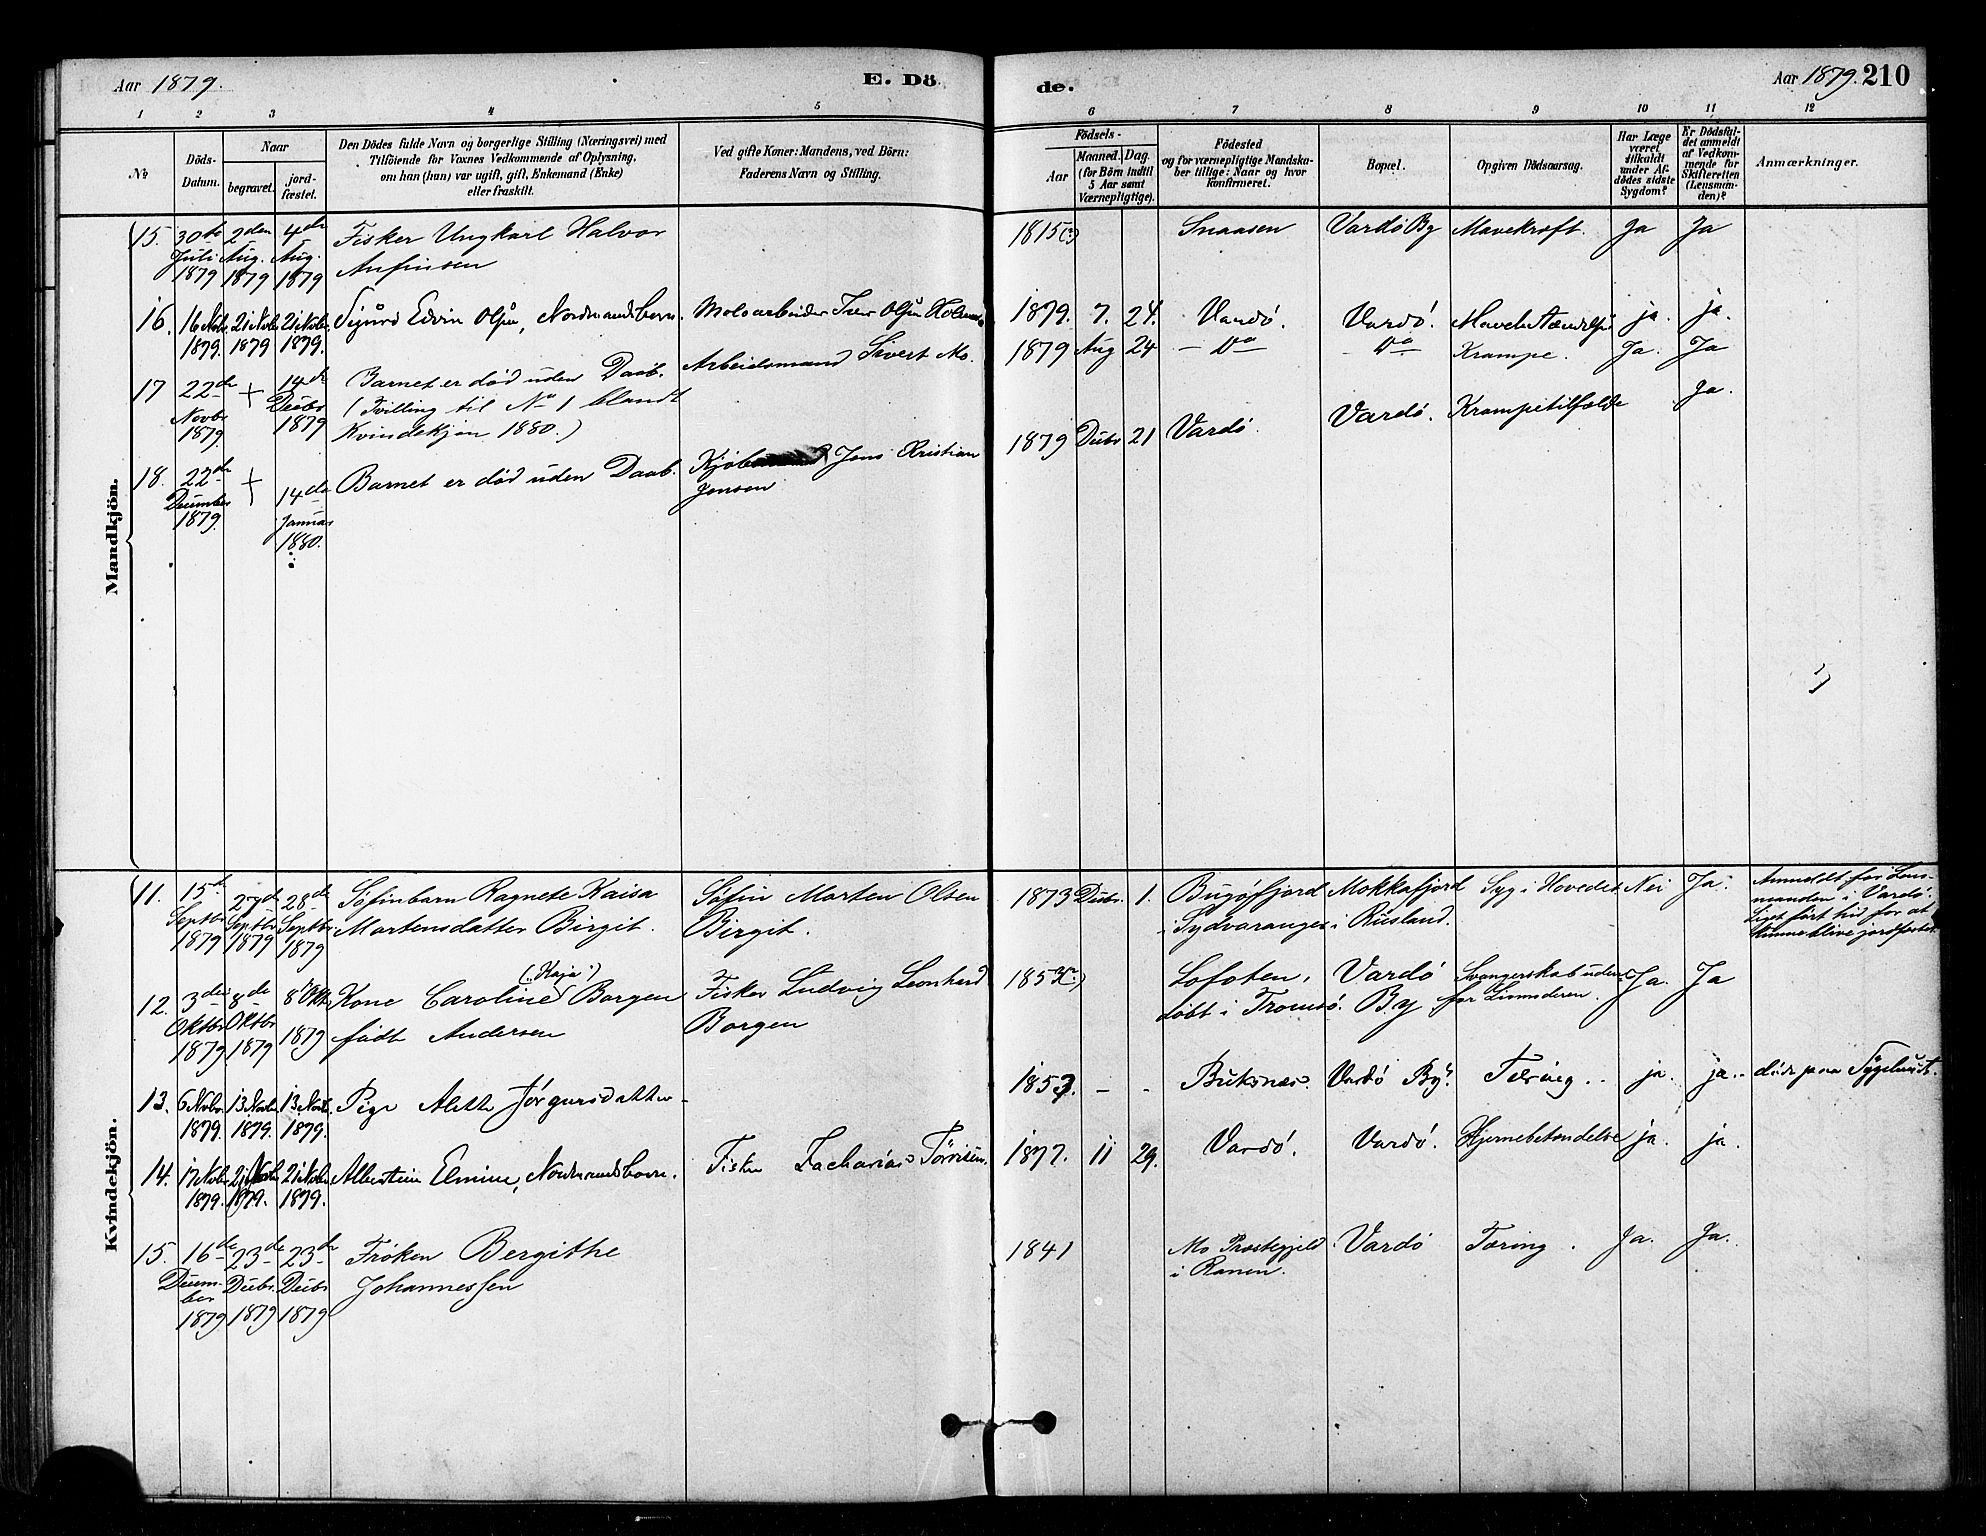 Aar 1879.
E. Dö
de.
Aar 1879. 210
1 2 3 4 5 6 7 8 9 10 11 12
No
Döds-
Datum.
Naar
begravet.
jord-
fæstet.
Den Dödes fulde Navn og borgerlige Stilling (Næringsvei) med
Tilföiende for Voxnes Vedkommende af Oplysning,
om han (hun) var ugift, gift, Enkemand (Enke)
eller fraskilt.
Ved gifte Koner: Mandens, ved Börn:
Faderens Navn og Stilling.
Födsels-
Aar
Maaned. Dag.
(for Börn indtil
5 Aar samt
Værnepligtige).
Födested
og for værnepligtige Mandska-
ber tillige: Naar og hvor
konfirmeret.
Bopæl.
Opgiven Dödsaarsag.
Har Læge
været
tilkaldt
under Af-
dödes sidste
Sygdom?
Er Dödsfal-
det anmeldt
af Vedkom-
mende for
Skifteretten
(Lensman-
den)?
Anmærkninger.
Mandkjön.
15. 30te Juli 1879 2den Aug. 1879 4de Aug. 1879 Fisker Ungkarl Halvor
Anfinsen
1815(?) Snaasen Vardö By Mavekræft. Ja Ja
16. 16 Nvbr 1879. 21 Nvbr 1879 21 Nvbr 1879. Sigurd Edvin Olsen, Nordmandsbarn. Moloarbeider Iver Olsen
1879. 7. 24. Vardö. Vardö. ja. ja.
17 22de Novbr 1879 + 14de Decbr 1879 Barnet er död uden Daab.
(Tvilling til No 1 blandt
Kvindekjön 1880.)
Arbeidsmand Sivert Mo.
1879 Aug 24 — Do — Do Krampe. Ja. Ja
18. 22de December 1879 + 14de Januar 1880. Barnet er död uden Daab.
Jens Kristian
Jensen
1879 Decbr 21 Vardö. Vardö. Krampetilfælde Ja.
Kvindekjön.
11. 15de Septbr 1879 27de Septbr 1879 28de Septbr 1879 Söfinbarn Ragnete Kaisa
Martensdatter Birgit.
Söfin Morten Olsen
Birgit.
1873 Decbr. 1. Bugöfjord
i Sydvaranger
Mokkafjord
i Rusland.
Syg i Hovedet Nei Ja.
Anmeldt for Lens-
manden i Vardö.
Liget fört hid for at
kunne blive jordfæstet
12. 3de Oktbr 1879 8de Oktbr 1879 8' Okt 1879 Kone Caroline ("Kaja") Borgen
födt Andersen
Fisker Ludvig Leonhard
Borgen
Lofoten,
döbt i Tromsö.
Vardö
By
Svangerskab uden
for Livmoderen.
Ja. Ja
13. 6 Nvbr. 1879. 13 Novbr 1879. 13 Novbr. 1879. Pige Alette Jörgensdatter
1853. - - Buksnæs. Vardö By. Tæring. ja. ja. döde paa Sygehuset.
14. 17 Nvbr 1879. 21 Nvbr 1879. 21 Nvbr 1879. Albertine Elmine, Nordmandsbarn. Fisker Zacharias
1877. 11 29. Vardö. Vardö. Hjernebetændelse ja. ja.
15. 16de December 1879 23de Decbr. 1879 23de Decbr 1879 Fröken Bergithe
Johannessen
1841 Mo Præstegjeld
i Ranen.
Vardö Tæring. Ja. Ja.